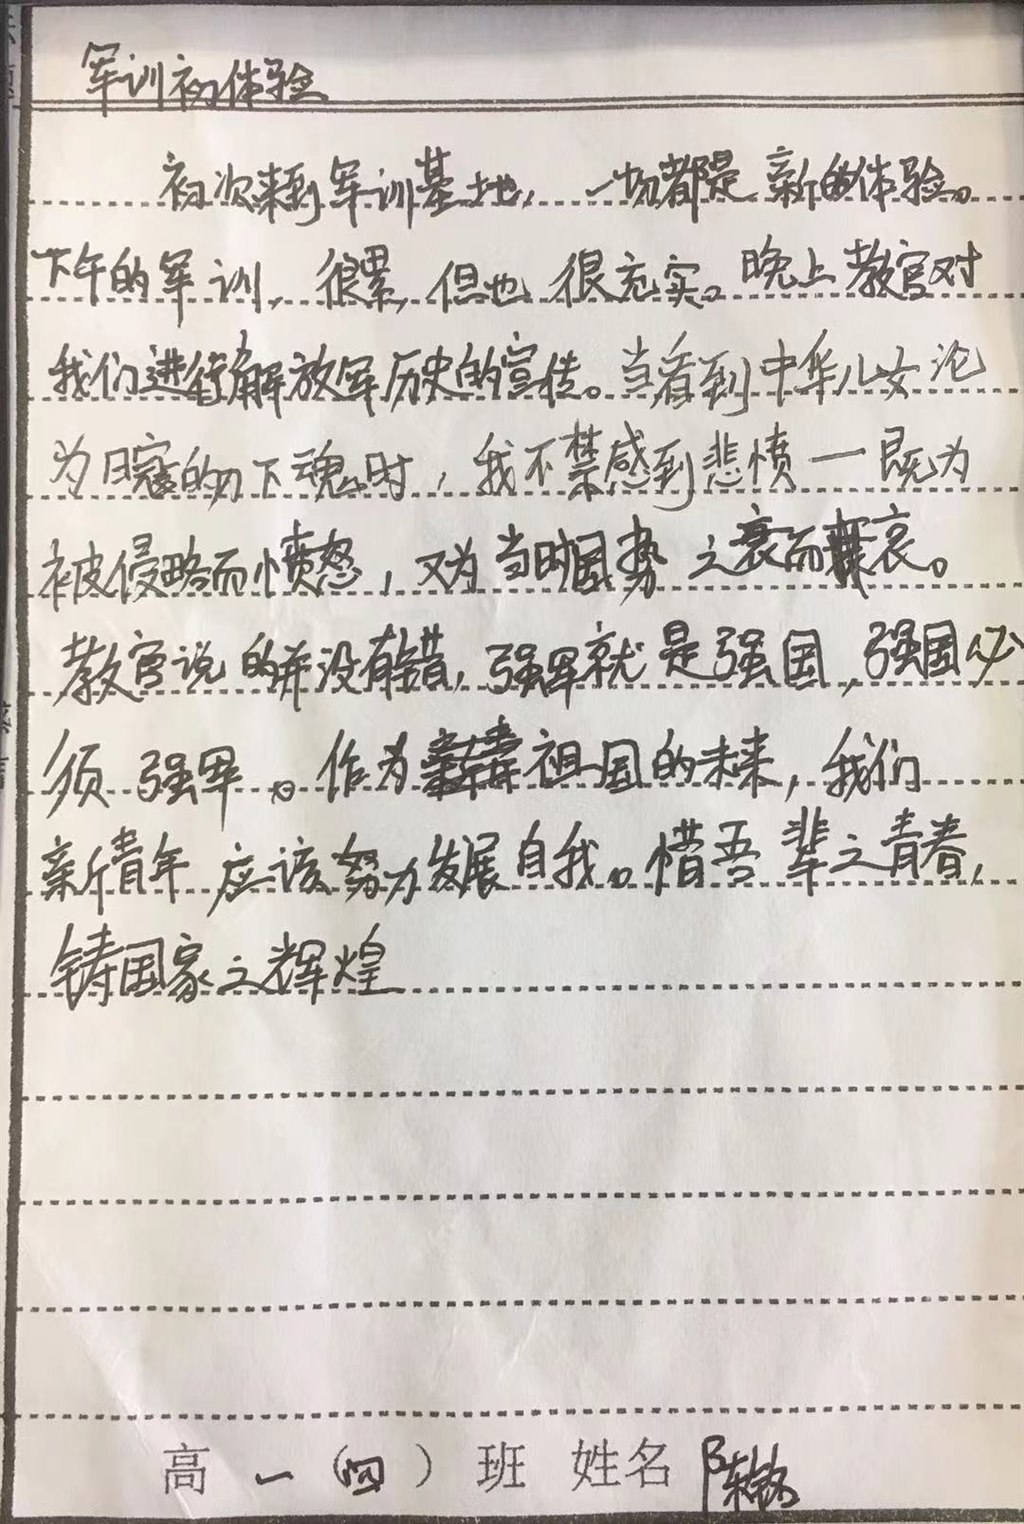 军训初体验
初次来到军训基地，一切都是新的体验。
下午的军训，很累，但也很充实。晚上教官对
我们进行解放军历史的宣传。当看到中华儿女沦
为日寇的刀下魂时，我不禁感到悲愤——既为
被侵略而愤怒，又为当时国势之衰而悲哀。
教官说的并没有错，强军就是强国，强国必
须强军。作为祖国的未来，我们
新青年应该努力发展自我。惜吾辈之青春，
铸国家之辉煌
高一（四）班 姓名 陈